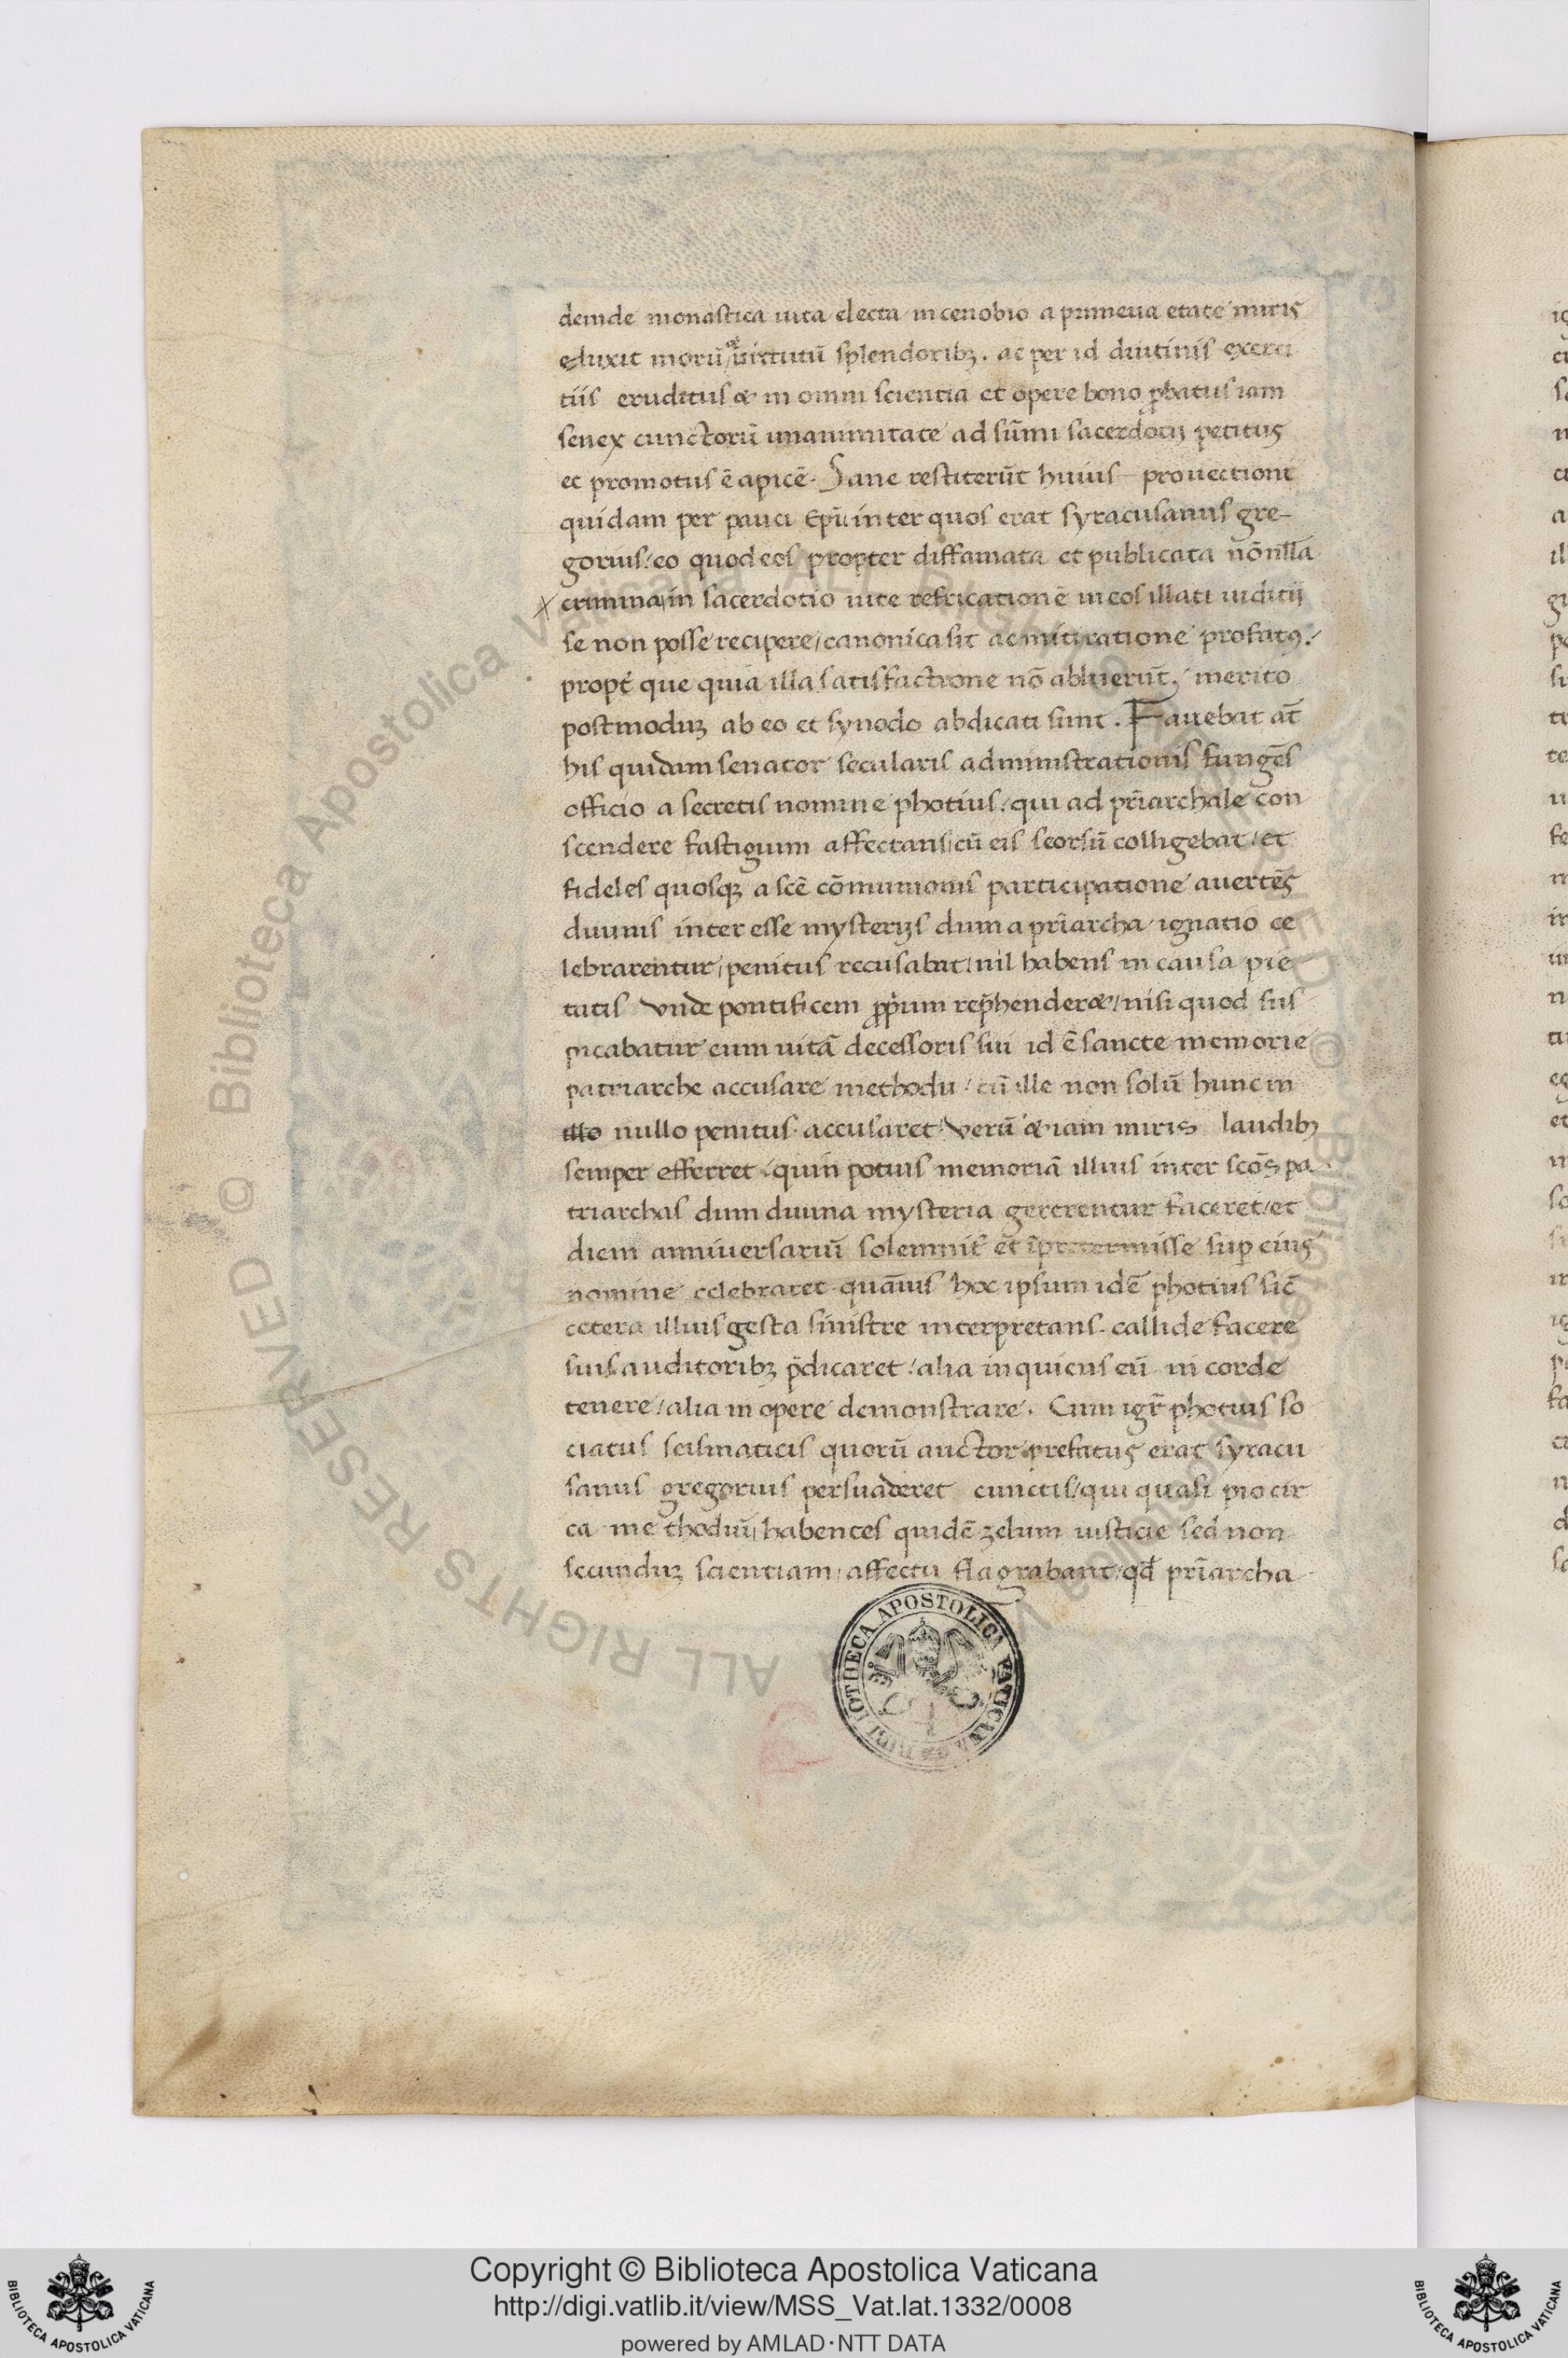 deinde monastica uita electa in cenobio a primeua etate miris
eluxit morū et uirtutū splendoribꝫ. ac per id diutinis exerci
tiis eruditus & in omni scientia et opere bono ꝓbatus iam
senex cunctorū unanimitate ad sūmi sacerdotij petitus
et promotus ē apicē. Sane restiterūt huius prouectioni
quidam per pauci Epī inter quos erat syracusanus gre-
gorius/ eo quod eos propter diffamata et publicata nōnlla
crimina in sacerdotio uite refricationē in eos illati iuditij
se non posse recipere/ canonica sit ac miti ratione profatꝰ/
propt̄ que quia illa satisfactione nō abluerūt, merito
postmoduꝫ ab eo et synodo abdicati sunt. Fauebat at̄
his quidam senator secularis administrationis fungēs
officio a secretis nomine photius/ qui ad pr̄iarchale con
scendere fastigium affectans/ cū eis seorsū colligebat/ et
fideles quosqꝫ a scē cōmunionis participatione auertēs
diuinis inter esse mysterijs dum a pr̄iarcha ignatio ce
lebrarentur/ penitus recusabat/ nil habens in causa pie
tatis vnde pontificem ꝓpium rep̄hender&/ nisi quod sus
picabatur eum uitā decessoris sui id ē sancte memorie
patriarche accusare methodu/ cū ille non solū hunc in
illo nullo penitus accusaret/ verū &iam miris laudibꝫ
semper efferret/ quin potius memoriā illius inter scōs pa
triarchas dum diuina mysteria gererentur faceret/ et
diem anniuersariū solemnit̄ et īpretermisse sup eius
nomine celebraret. quāuis hoc ipsum idē photius sic̄
cetera illius gesta sinistre interpretans. callide facere
suis auditoribꝫ p̄dicaret/ alia inquiens eū in corde
tenere/ alia in opere demonstrare. Cum igr̄ photius so
ciatus scismaticis quorū auctor prefatus erat syracu
sanus gregorius persuaderet cunctis/ qui quasi pio cir
ca methodiū/ habentes quidē zelum iusticie sed non
secunduꝫ scientiam/ affectu flagrabant/ qđ pr̄iarcha
BIBLIOTHECA APOSTOLICA VATICANA
© Biblioteca Apostolica Vaticana ALL RIGHTS RESERVED
Copyright © Biblioteca Apostolica Vaticana
http://digi.vatlib.it/view/MSS_Vat.lat.1332/0008
powered by AMLAD·NTT DATA
BIBLIOTECA APOSTOLICA VATICANA
BIBLIOTECA APOSTOLICA VATICANA